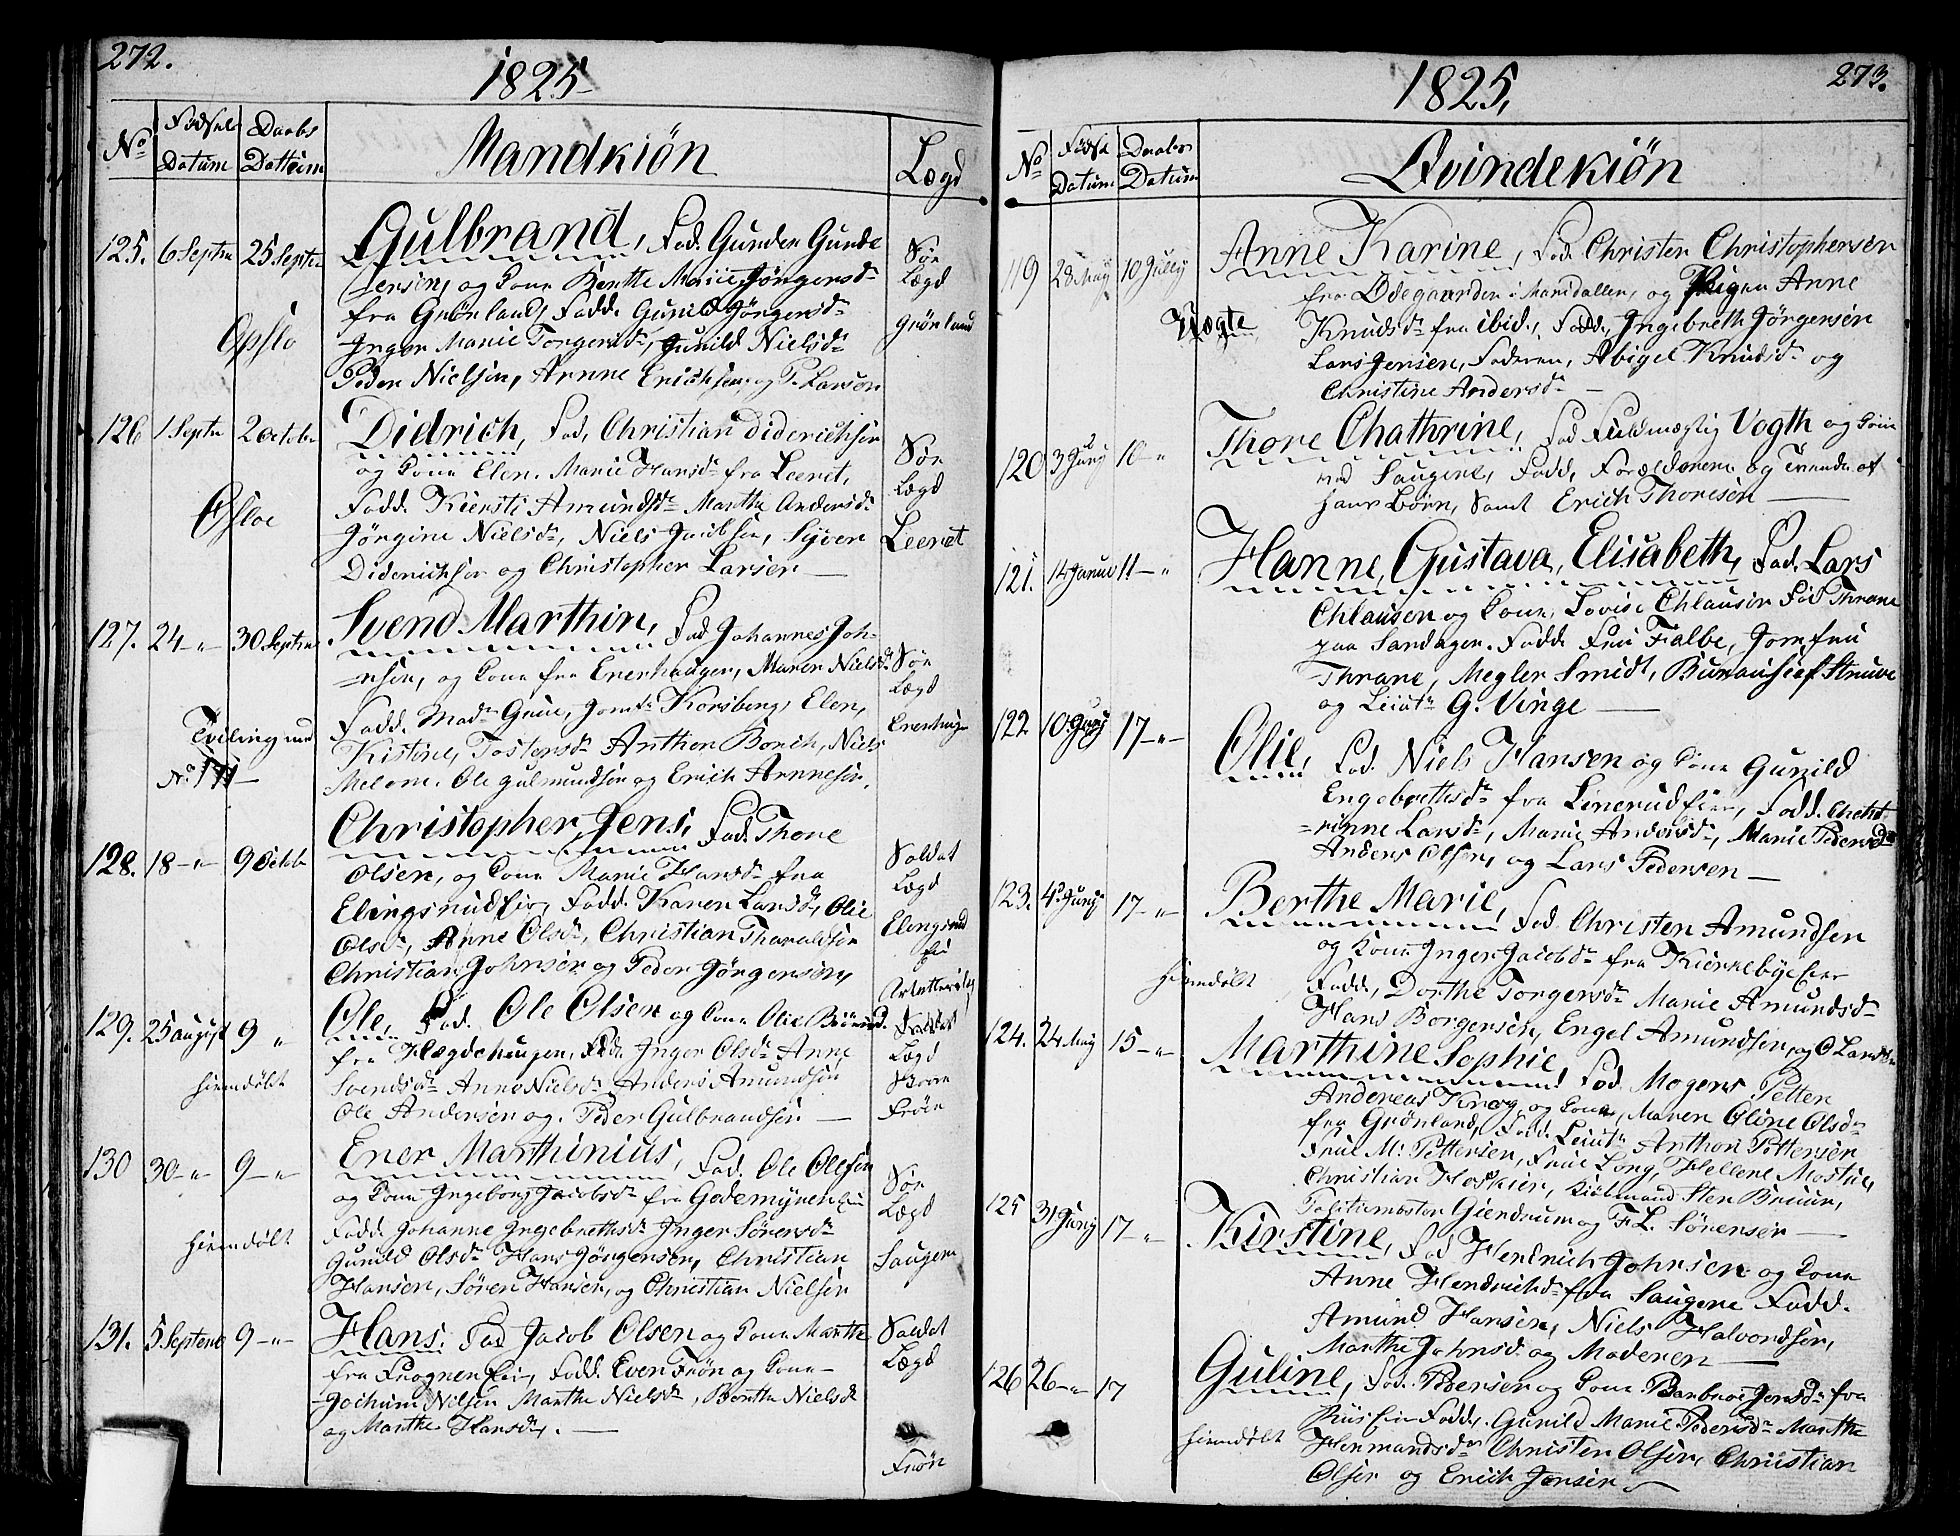 272.
1825
No
Födsels
Datum
Daabs
Dattum
Mandkiön
Lægd
125. 6 Septr 25 Septr
Gulbrand, Fad. Gunder Gunde
ersen, og Cone Berthe Marie Jörgersdr
fra Grönland, Fadd. Gunild Jörgensdr
Inger Marie Torgersdr, Gunild Nielsdr
Peder Nielsen, Arnne Erichsen, og P. Larsen
Opslo
Sör
Lægd
Grönland
126 1 Septr 2 October
Didrich, Fad. Christian Diderichsen
og Cone Elen Marie Hansdr fra Leeret,
Fadd. Kiersti Amundsdr Marthe Andersdr
Jörgine Nielsdr, Niels Jacobsen, Syver
Diderichsen og Christopher Larsen
Osloe
Sör
Lægd
Leeret
127. 24 -"- 30 Septr
Svend Marthin, Fad Johannes Joh-
-nsen, og Cone fra Enerhaugen, Maren Nielsdr
Fadd. Madm Grue, Jomfr Korsberg, Elen,
Kistine, Tostensdr Anthon Borch, Niels
Melom. Ole Gulmundsen og Erich Arnnesen.
Tviling med
No 111
Sör
Lægd
Enerhugen
128. 18 -"- 9 Octob
Christopher Jens, Fad. Thore
Olsen, og Cone Marie Hansdr fra
Elingsrudeie, Fadd. Karen Larsdr, Olie
Olsdr, Anne Olsdr, Christian Tharaldsen
Christian Johnsen og Peder Jörgensen,
Soldat
Lægd
Elengsrud
eie
129. 25 august 9 "
Ole, Fad. Ole Olsen og Cone Olie
fra Hægdehaugen, Fad. Inger Olsdr Anne
Svendsdr Anne Nielsdr Anders Amundsen
Ole Andersen og Peder Gulbrandsen
hiemdöbt
Soldat
Lægd
Fröen
130 30 -"- 9 -"-
Ener Marthinius, Fad. Ole Olesen
og Cone Ingeborg Jacobsdr fra Godemyren
Fadd. Johanne Ingebrethsdr Inger Sörensdr
Gunild Olsdr Hans Jörgensen, Christian
Hansen, Sören Hansen, og Christian Nielsen
hiemdöbt
Sör
Lægd
Saugene
131. 5 Septemb 9 -"-
Hans, Fad Jacob Olsen og Cone Marthe
fra Frognereie, Fadd. Even Frön og Cone
Jochum Nilsen Marthe Nielsdr, Berthe Nielsdr
og Marthe Hansdr.
Soldat
Lægd
Frön
273.
1825,
No
Födsl
Datum
Daabs
Datum
Qvindekiön
119 28 May 10 July
Anne Karine, Fad. Christen Christophersen
fra Ödegaarden i Maridallen, og Pigen Anne
Knudsdr fra ibid, Fadd, Ingebreth Jörgensen
Lars Jensen, Faderen, Abigel Knudsdr og
Christine Andersdr
Uægte
120 3 Juny 10 -"
Thore Chathrine, Fad Fuldmægtig Vogth og Cone
ved Saugene, Fadd, Forældrene og Trende af
hans Börn, Samt Erich Thoresen
121. 14 Januv 11 -"
Hanne, Gustava, Elisabeth, Fad. Lars
Chlausen og Cone, Lovise Chlausen Föd Thrane
paa Sandagen. Fadd. Frue Falbe, Jomfrue
Thrane, Megler Smidt, Burauchef Struve
og Leiutn G. Vinge
122 10 Juny 17 -"-
Olie, Fad. Niels Hansen og Cone Gunild
Engebrethsdr fra Linerudeie, Fadd. Chatr
-rinne Larsdr, Marie Andersdr, Marie Pedersdr
Anders Olsen, og Lars Pedersen
123. 4 Juny 17 -"
Berthe Marie, Fad Christen Amundsen
og Cone Inger Jacobsdr fra Kierkebyeie
Fadd, Dorthe Torgersdr Marie Amundsdr
Hans Borgersen, Engel Amundsen, og O Larsen
hiemdöbt
124. 24 May 15 -"
Marthine Sophie, Fad. Mogens Petter
Andreas Krog og Cone, Maren Oline Olsdr
fra Grönland, Fadd. Leiutn Anthon Pettersen
Frue M. Pettersen, Frue Long, Hellene Mostue,
Christian Hoskier, Kiöbmand Sten Bruun,
Giendrum og F. L. Sörensen
125 31 Juny 17 -"-
Kirstine, Fad Hendrich Johnsen og Cone
Anne Hendrichsdr fra Saugene Fadd.
Amund Hansen, Niels Halvordsen,
Marthe Johnsdr og Moderen
126 26 -"- 17
Guline, Fad. Pedersen og Cone Barbroe Jensdr fra
Fadd, Gunild Marie Pedersdr Marthe
Hermandsdr Christen Olsen, Christian
Olsen og Erich Jensen
hiemdöbt